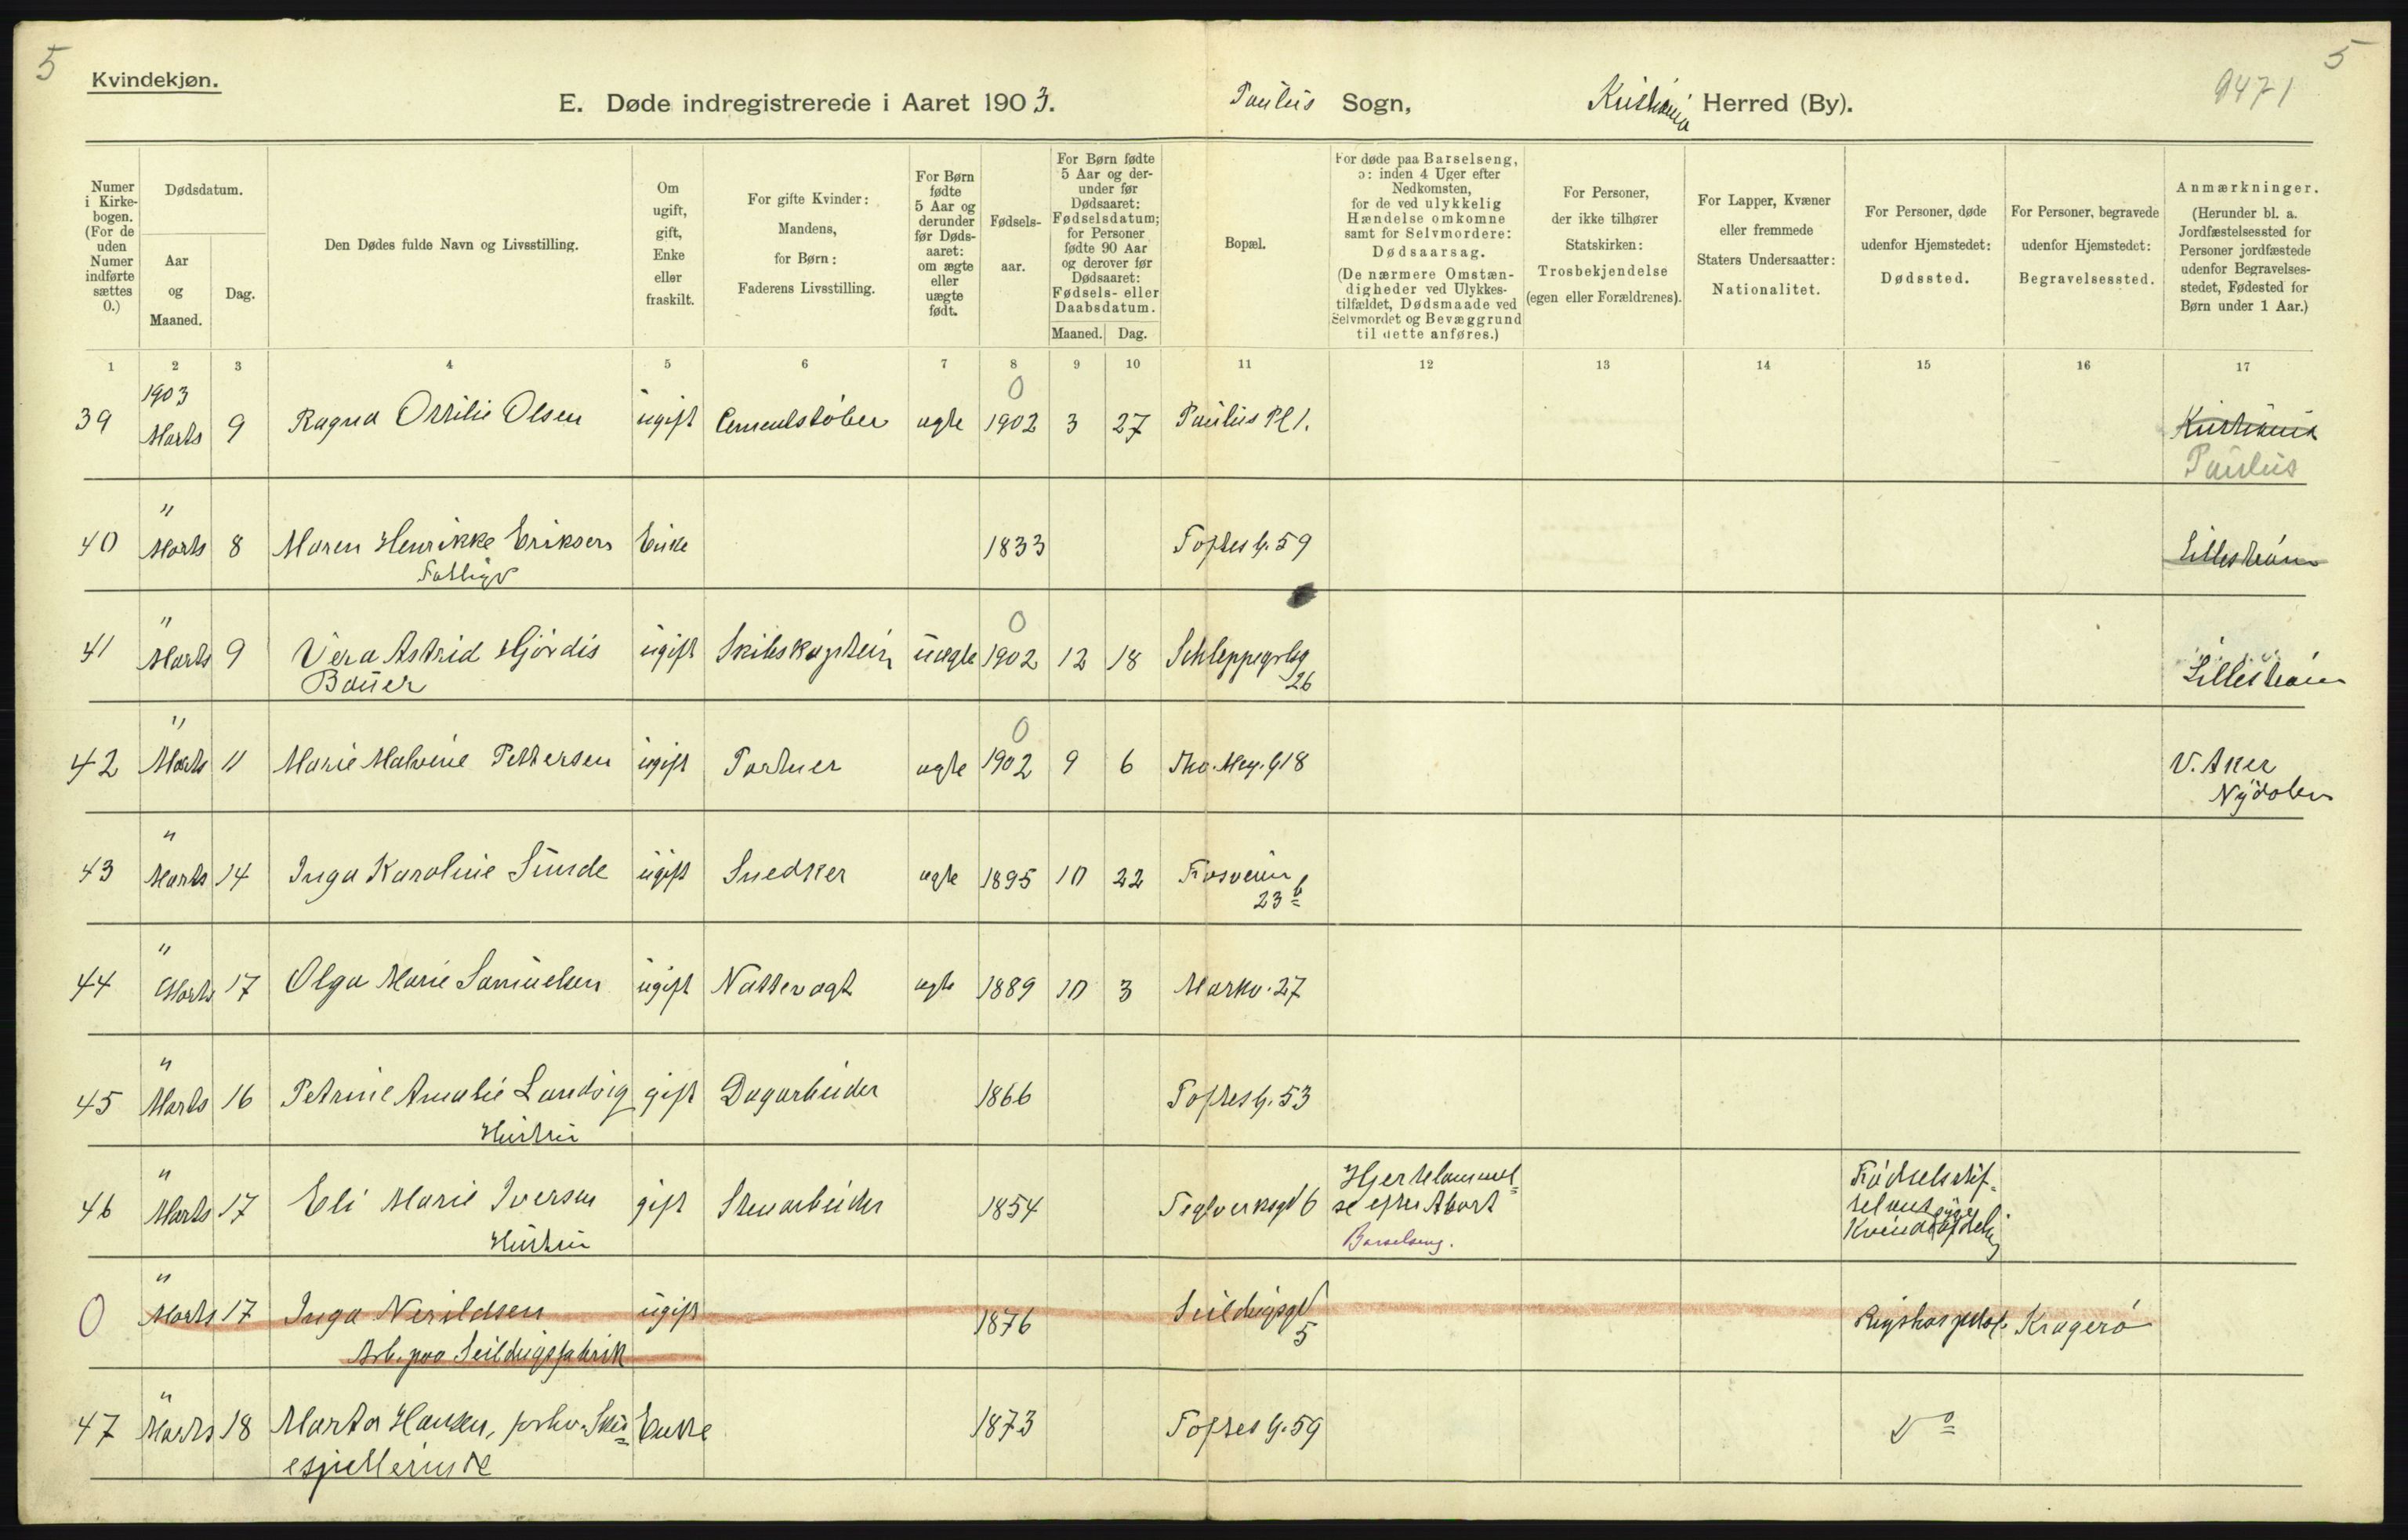 5
Kvindekjøn.
E. Døde indregistrerede i Aaret 1903.
Paulus Sogn,
Kristiania Herred (By).
9471
5
Numer i Kirke-bogen. (For de uden Numer indførte sættes 0.)
Dødsdatum.
Aar og Maaned.
Dag.
Den Dødes fulde Navn og Livsstilling.
Om ugift, gift, Enke eller fraskilt.
For gifte Kvinder: Mandens, for Børn: Faderens Livsstilling.
For Børn fødte 5 Aar og derunder før Døds-aaret: om ægte eller uægte født.
Fødsels-aar.
For Børn fødte 5 Aar og der-under før Dødsaaret: Fødselsdatum; for Personer fødte 90 Aar og derover før Dødsaaret: Fødsels- eller Daabsdatum.
Maaned. Dag.
Bopæl.
For døde paa Barselseng, ɔ: inden 4 Uger efter Nedkomsten, for de ved ulykkelig Hændelse omkomne samt for Selvmordere: Dødsaarsag. (De nærmere Omstæn-digheder ved Ulykkes-tilfældet, Dødsmaade ved Selvmordet og Bevæggrund til dette anføres.)
For Personer, der ikke tilhører Statskirken: Trosbekjendelse (egen eller Forældrenes).
For Lapper, Kvæner eller fremmede Staters Undersaatter: Nationalitet.
For Personer, døde udenfor Hjemstedet: Dødssted.
For Personer, begravede udenfor Hjemstedet: Begravelsessted.
Anmærkninger. (Herunder bl. a. Jordfæstelsessted for Personer jordfæstede udenfor Begravelses-stedet, Fødested for Børn under 1 Aar.)
1 2 3 4 5 6 7 8 9 10 11 12 13 14 15 16 17
1903 0
39 Marts 9 Ragna Ottilie Olsen ugift Cementstøber ægte 1902 3 27 Paulus Pl 1. Kristiania
Paulus
"
40 Marts 8 Maren Henrikke Eriksen Enke 1833 Toftes G. 59 Lillestrøm
Fattigv
" 0
41 Marts 9 Vera Astrid Hjørdis ugift Skibskaptein uægte 1902 12 18 Schleppegrlsg Lillestrøm
Bauer 26
" 0
42 Marts 11 Marie Malvine Pettersen ugift Portner ægte 1902 9 6 Tho. Mey. G 18 V. Aker
Nydalen
"
43 Marts 14 Inga Karoline Sunde ugift Snedker ægte 1895 10 22
23 b
"
44 Marts 17 Olga Marie Samuelsen ugift Nattevagt ægte 1889 10 3 Markv. 27
"
45 Marts 16 Petrine Amalie Landvig gift Dagarbeider 1866 Toftes G. 53
Hustru
"
46 Marts 17 Eli Marie Iversen gift Stenarbeider 1854 Teglverksgd 6 Hjertelammel-se efter Abort Fødselsstif-
Hustru Barselseng. Kvindeafdeling
"
0 Marts 17 Inga ugift 1876 Seildugsgd 5 Rigshospital. Kragerø
Arb. paa Seildugsfabrik
"
47 Marts 18 Marta Hansen, forhv. Sku- Enke 1873 Toftes G. 59 Do
espillerinde